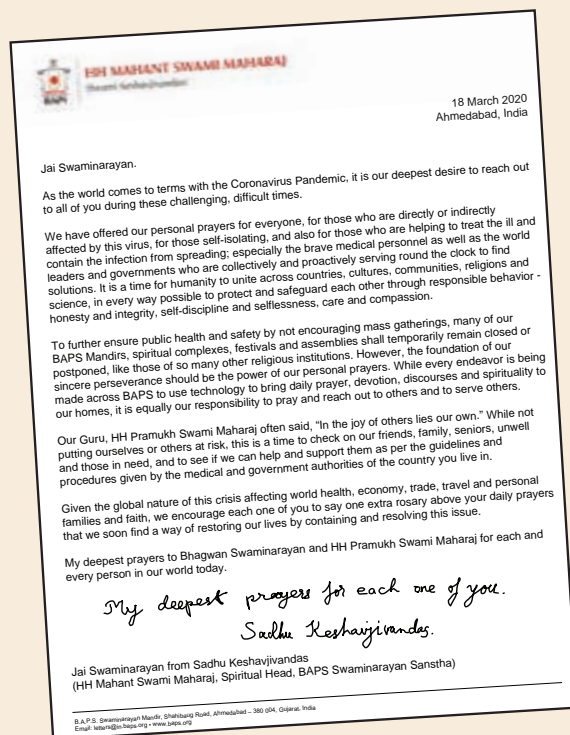 HH MAHANT SWAMI MAHARAJ
Swami Keshavjivandas
BAPS
18 March 2020
Ahmedabad, India
Jai Swaminarayan.
As the world comes to terms with the Coronavirus Pandemic, it is our deepest desire to reach out
to all of you during these challenging, difficult times.
We have offered our personal prayers for everyone, for those who are directly or indirectly
affected by this virus, for those self-isolating, and also for those who are helping to treat the ill and
contain the infection from spreading; especially the brave medical personnel as well as the world
leaders and governments who are collectively and proactively serving round the clock to find
solutions. It is a time for humanity to unite across countries, cultures, communities, religions and
science, in every way possible to protect and safeguard each other through responsible behavior -
honesty and integrity, self-discipline and selflessness, care and compassion.
To further ensure public health and safety by not encouraging mass gatherings, many of our
BAPS Mandirs, spiritual complexes, festivals and assemblies shall temporarily remain closed or
postponed, like those of so many other religious institutions. However, the foundation of our
sincere perseverance should be the power of our personal prayers. While every endeavor is being
made across BAPS to use technology to bring daily prayer, devotion, discourses and spirituality to
our homes, it is equally our responsibility to pray and reach out to others and to serve others.
Our Guru, HH Pramukh Swami Maharaj often said, “In the joy of others lies our own.” While not
putting ourselves or others at risk, this is a time to check on our friends, family, seniors, unwell
and those in need, and to see if we can help and support them as per the guidelines and
procedures given by the medical and government authorities of the country you live in.
Given the global nature of this crisis affecting world health, economy, trade, travel and personal
families and faith, we encourage each one of you to say one extra rosary above your daily prayers
that we soon find a way of restoring our lives by containing and resolving this issue.
My deepest prayers to Bhagwan Swaminarayan and HH Pramukh Swami Maharaj for each and
every person in our world today.
My deepest prayers for each one of you.
Sadhu Keshavjivandas.
Jai Swaminarayan from Sadhu Keshavjivandas
(HH Mahant Swami Maharaj, Spiritual Head, BAPS Swaminarayan Sanstha)
B.A.P.S. Swaminarayan Mandir, Shahibaug Road, Ahmedabad – 380 004, Gujarat, India
Email: letters@in.baps.org • www.baps.org